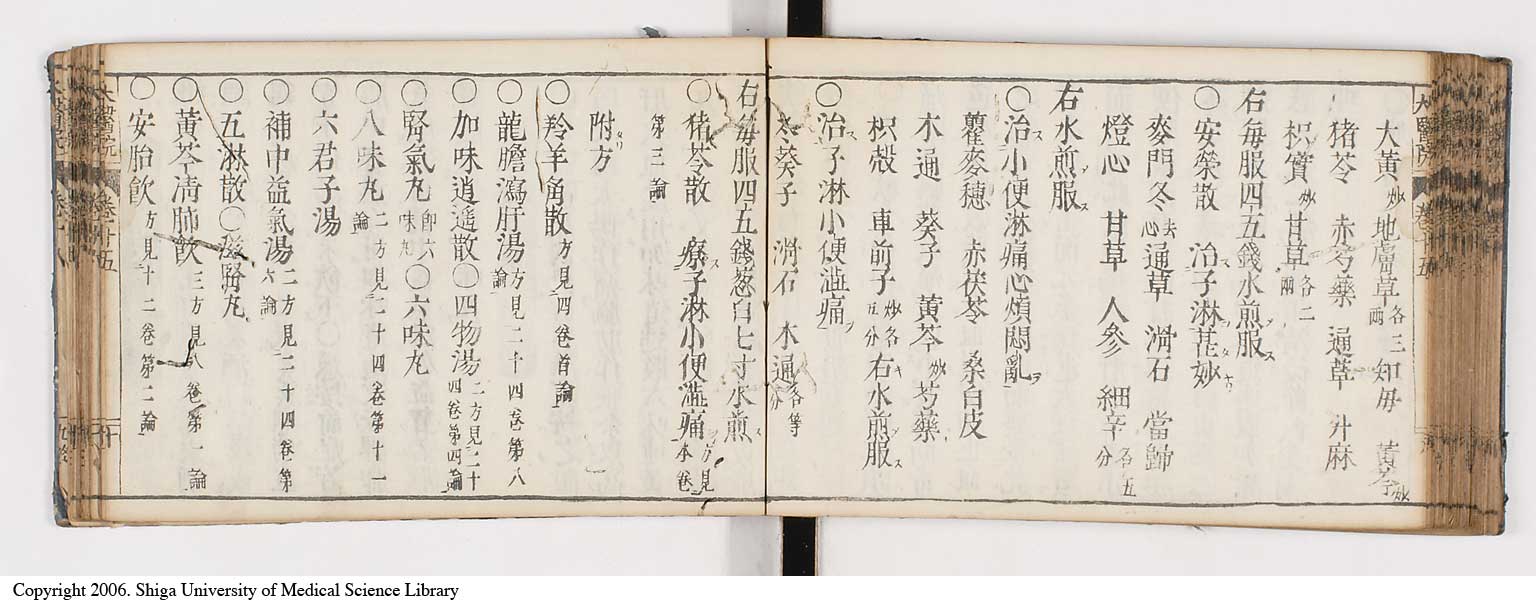 大黃炒 地膚草各三兩 知毋 黃芩炒
猪苓 赤芍藥 通草 升麻
枳實炒 甘草各二兩
右毎服四五錢水煎服
〇安榮散 治子淋甚妙
麥門冬去心 通草 滑石 當歸
燈心 甘草 人參 細辛各五分
右水煎服
〇治小便淋痛心煩悶亂
瞿麥穗 赤茯苓 桑白皮
木通 葵子 黃芩炒 芍藥
枳殼 車前子炒各五分 右水煎服
〇治子淋小便澁痛
冬葵子 滑石 木通各等分
右毎服四五錢葱白七寸水煎
〇猪苓散 療子淋小便澁痛方見本卷
第三論
附方
〇羚羊角散方見四卷首論
〇龍膽瀉肝湯方見二十四卷第八論
〇加味逍遙散〇四物湯二方見二十四卷第四論
〇腎氣丸卽六味丸〇六味丸
〇八味丸二方見二十四卷第十一論
〇六君子湯
〇補中益氣湯二方見二十四卷第六論
〇五淋散〇滋腎丸
〇黃芩清肺飮三方見八卷第一論
〇安胎飮方見十二卷第二論
Copyright 2006. Shiga University of Medical Science Library